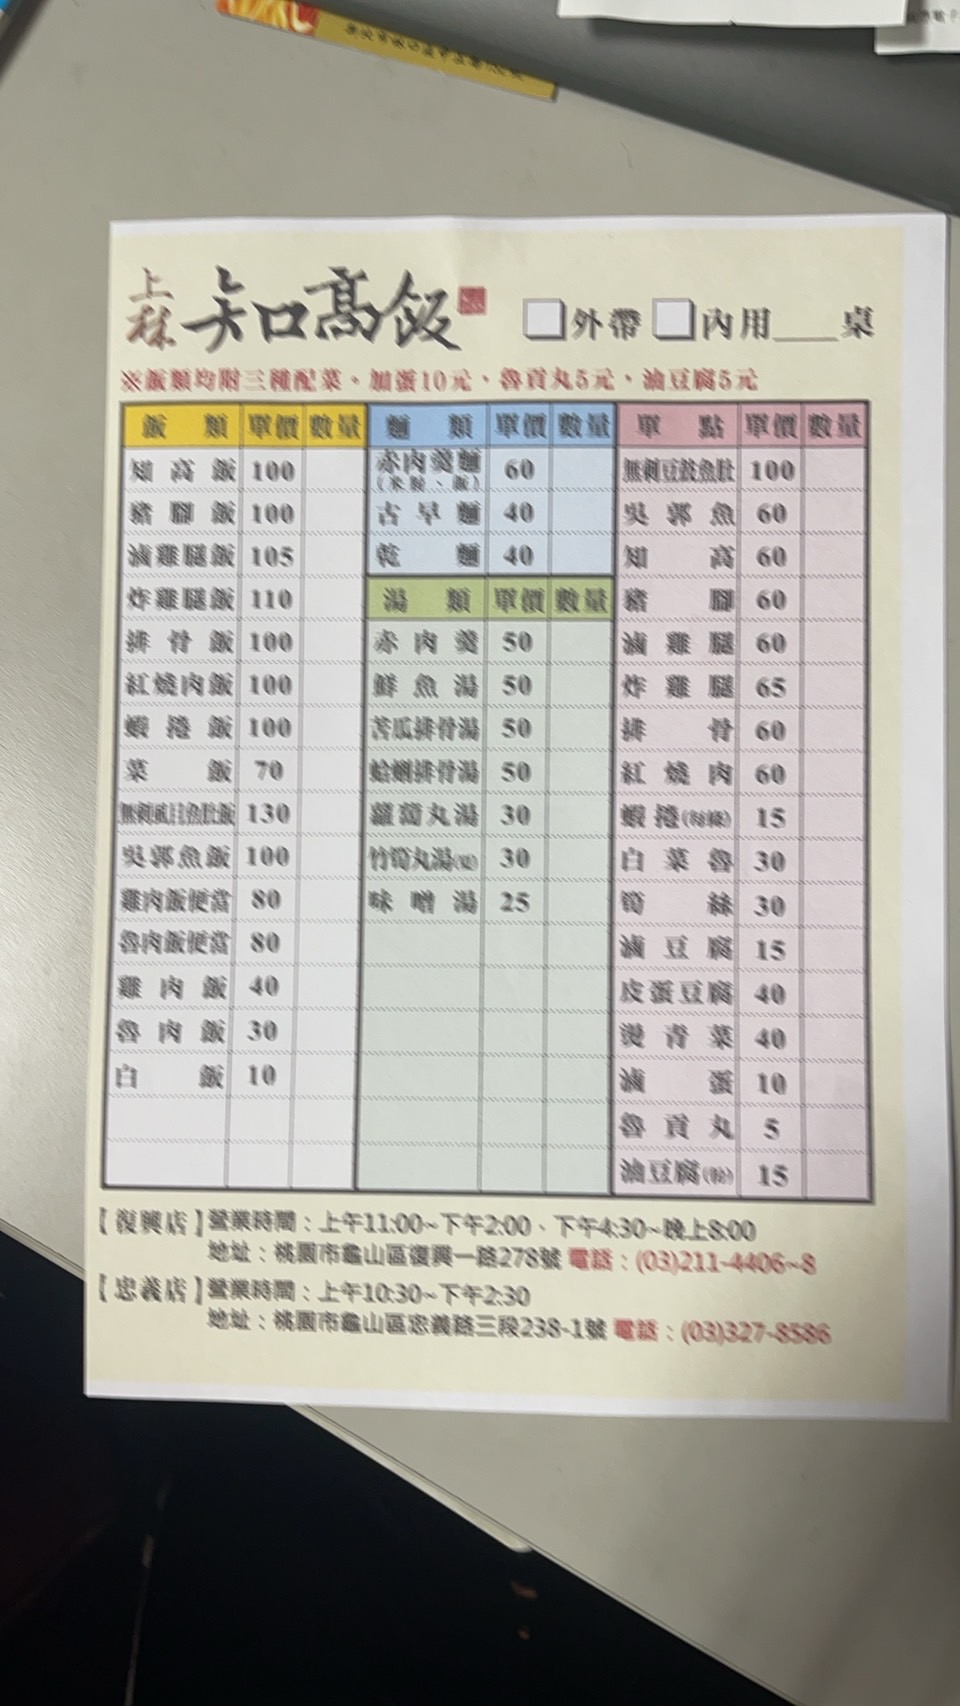 上林 知高飯
外帶 內用____桌
※飯類均附三種配菜。加蛋10元、魯貢丸5元、油豆腐5元
飯類 單價 數量
知高飯 100
豬腳飯 100
滷雞腿飯 105
炸雞腿飯 110
排骨飯 100
紅燒肉飯 100
蝦捲飯 100
菜飯 70
無刺虱目魚肚飯 130
吳郭魚飯 100
雞肉飯便當 80
魯肉飯便當 80
雞肉飯 40
魯肉飯 30
白飯 10
麵類 單價 數量
赤肉羹麵 60
(米粉、飯)
古早麵 40
乾麵 40
湯類 單價 數量
赤肉羹 50
鮮魚湯 50
苦瓜排骨湯 50
蛤蜊排骨湯 50
蘿蔔丸湯 30
竹筍丸湯 30
味噌湯 25
單點 單價 數量
無刺豆豉魚肚 100
吳郭魚 60
知高 60
豬腳 60
滷雞腿 60
炸雞腿 65
排骨 60
紅燒肉 60
蝦捲(每條) 15
白菜魯 30
筍絲 30
滷豆腐 15
皮蛋豆腐 40
燙青菜 40
滷蛋 10
魯貢丸 5
油豆腐 15
【復興店】營業時間：上午11:00~下午2:00、下午4:30~晚上8:00
地址：桃園市龜山區復興一路278號 電話：(03)211-4406~8
【忠義店】營業時間：上午10:30~下午2:30
地址：桃園市龜山區忠義路三段238-1號 電話：(03)327-8586